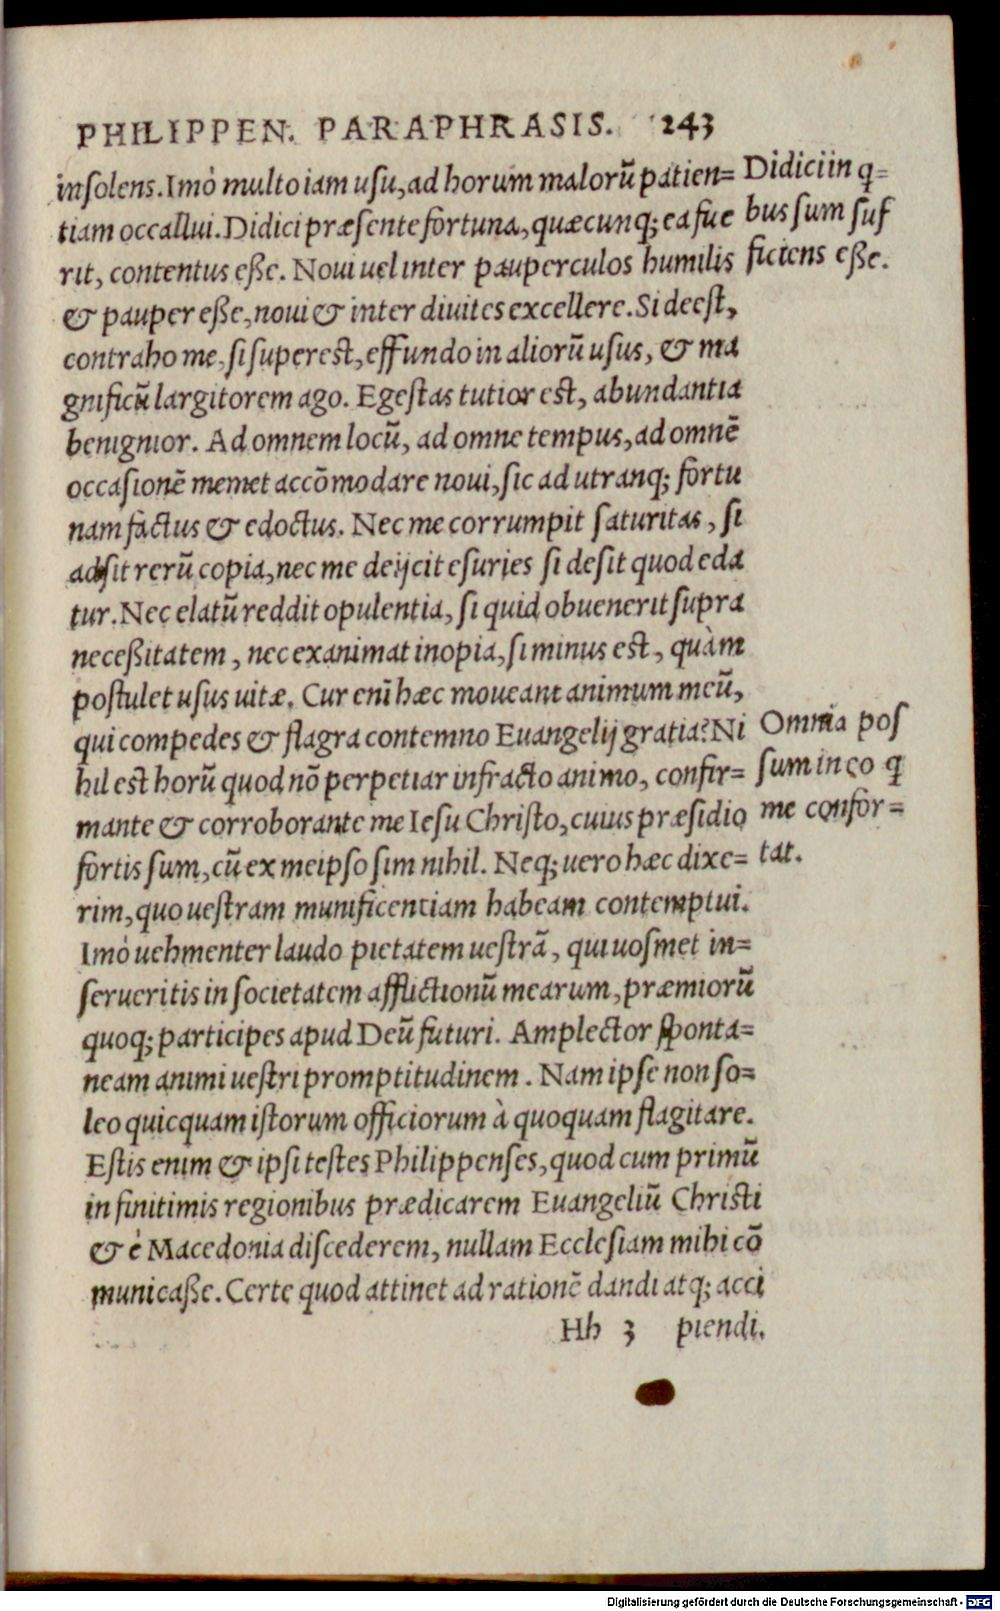 PHILIPPEN. PARAPHRASIS. 243
insolens. Imò multo iam usu, ad horum malorũ patien=
tiam occallui. Didici præsente fortuna, quæcunq; ea fue
rit, contentus eße. Noui uel inter pauperculos humilis
& pauper eße, noui & inter diuites excellere. Si deest,
contraho me, si superest, effundo in aliorũ usus, & ma
gnificũ largitorem ago. Egestas tutior est, abundantia
benignior. Ad omnem locũ, ad omne tempus, ad omnẽ
occasionẽ memet accõmodare noui, sic ad utranq; fortu
nam factus & edoctus. Nec me corrumpit saturitas, si
adsit rerũ copia, nec me deijcit esuries si desit quod eda
tur. Nec elatũ reddit opulentia, si quid obuenerit supra
neceßitatem, nec exanimat inopia, si minus est, quàm
postulet usus uitæ. Cur enĩ hæc moueant animum meũ,
qui compedes & flagra contemno Euangelij gratia? Ni
hil est horũ quod nõ perpetiar infracto animo, confir=
mante & corroborante me Iesu Christo, cuius præsidio
fortis sum, cũ ex meipso sim nihil. Neq; uero hæc dixe=
rim, quo uestram munificentiam habeam contemptui.
Imò uehmenter laudo pietatem uestrã, qui uosmet in=
serueritis in societatem afflictionũ mearum, præmiorũ
quoq; participes apud Deũ futuri. Amplector sponta=
neam animi uestri promptitudinem. Nam ipse non so=
leo quicquam istorum officiorum à quoquam flagitare.
Estis enim & ipsi testes Philippenses, quod cum primũ
in finitimis regionibus prædicarem Euangeliũ Christi
& è Macedonia discederem, nullam Ecclesiam mihi cõ
municaße. Certe quod attinet ad rationẽ dandi atq; acci
Hh 3 piendi.
Didici in q̃=
bus sum suf
ficiens eße.
Omnia pos
sum in eo q
me confor=
tat.
Digitalisierung gefördert durch die Deutsche Forschungsgemeinschaft - DFG